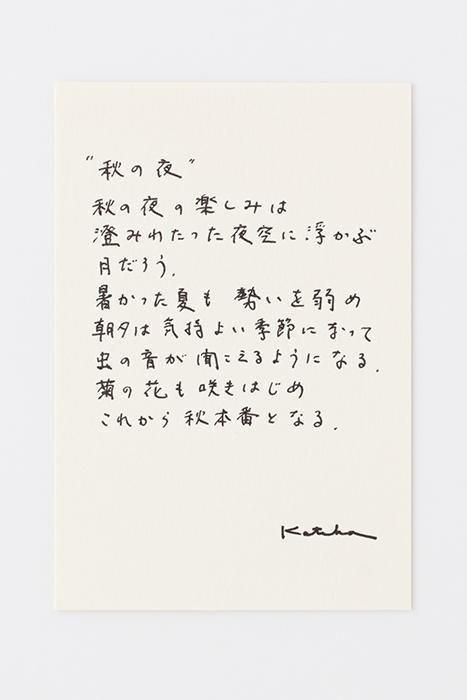 “秋の夜”
秋の夜の楽しみは
澄みわたった夜空に浮かぶ
月だろう.
暑かった夏も 勢いを弱め
朝夕は気持よい季節になって
虫の音が聞こえるようになる.
菊の花も咲きはじめ
これから秋本番となる.